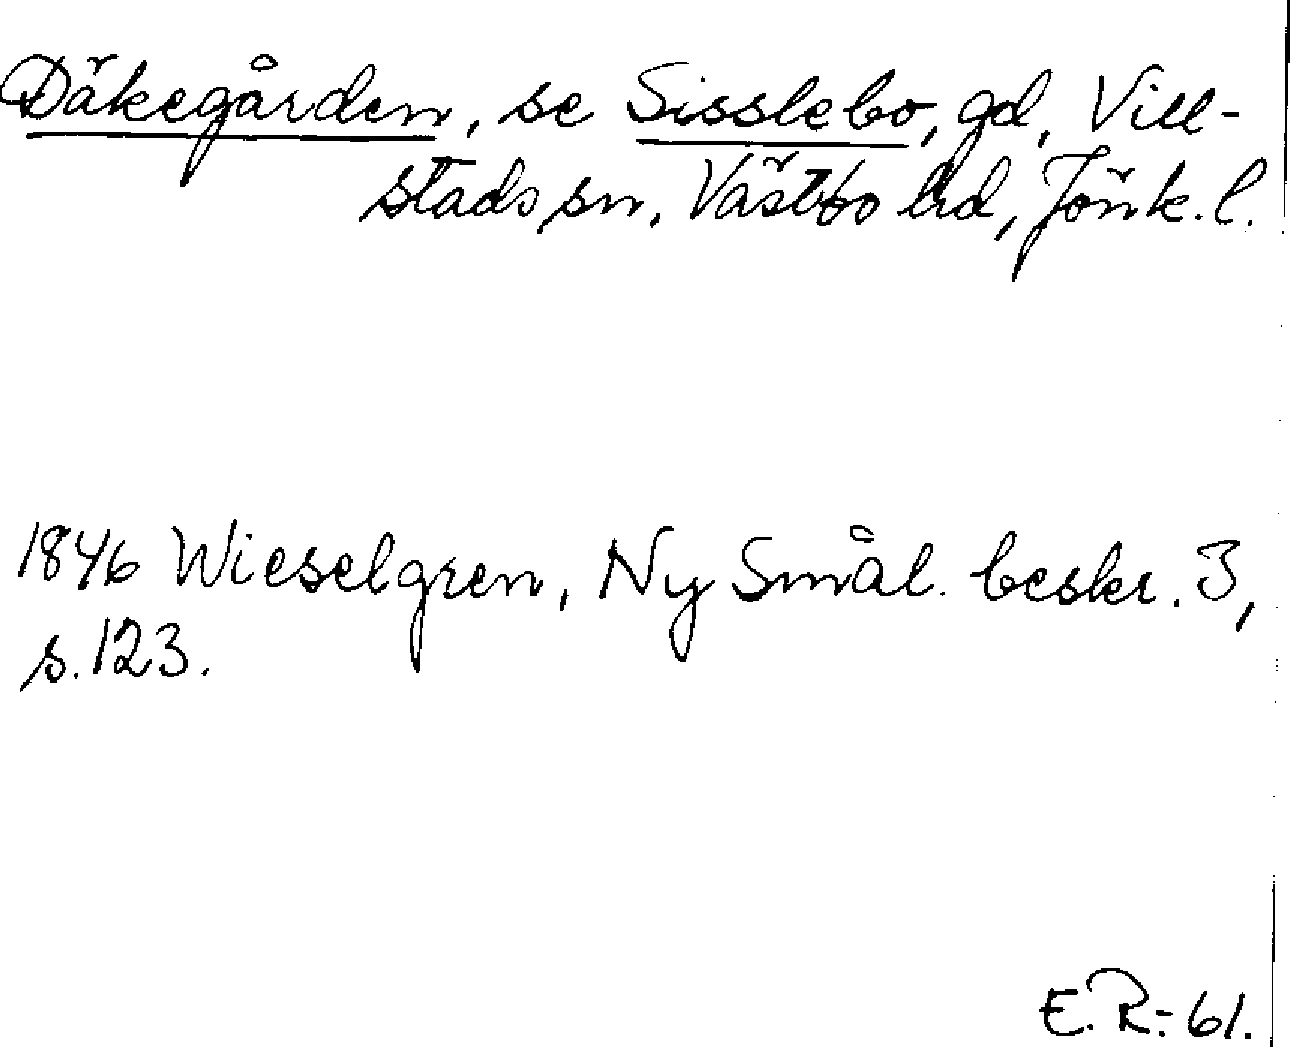 Däkegården, se Sisslebo, gd, Vill-
stads sn, Västbo hd, Jönk. l.
1846 Wieselgren, Ny Smål. beskr. 3,
s. 123.
E. R-: 61.